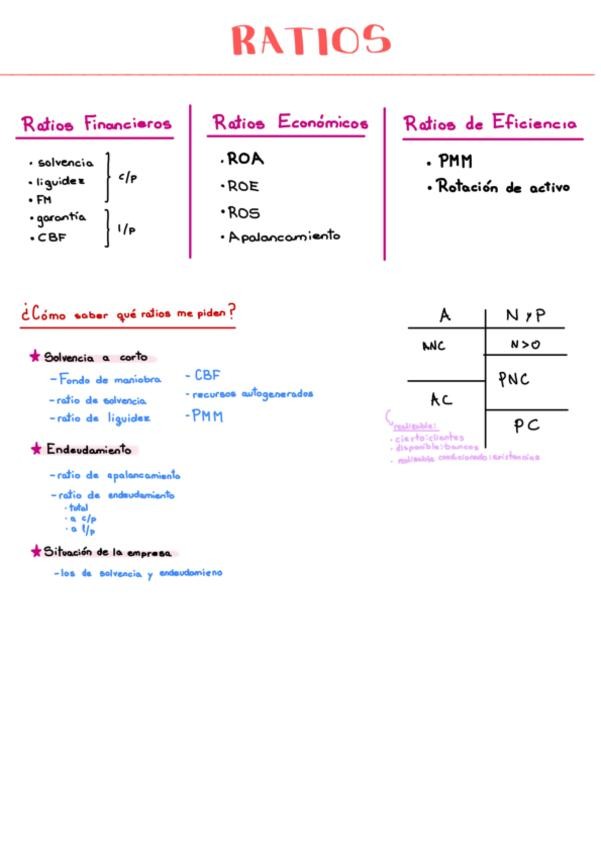 RATIOS
Ratios Financieros
• solvencia
• liquidez
• FM
c/p
• garantía
• CBF
l/p
Ratios Económicos
• ROA
• ROE
• ROS
• Apalancamiento
Ratios de Eficiencia
• PMM
• Rotación de activo
¿Cómo saber qué ratios me piden?
★ Solvencia a corto
- Fondo de maniobra
- ratio de solvencia
- ratio de liquidez
- CBF
- recursos autogenerados
- PMM
★ Endeudamiento
- ratio de apalancamiento
- ratio de endeudamiento
· total
· a c/p
· a l/p
★ Situación de la empresa
- los de solvencia y endeudamieno
A N y P
ANC N>0
PNC
AC
PC
realizable:
· cierto: clientes
· disponible: bancos
· realizable condicionado: existencias